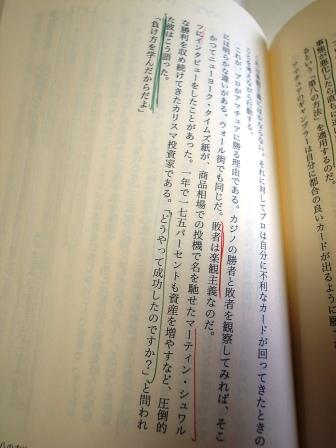 事態が悪化したらどうす
るという「第八の方法」を適用するのだ。
アマチュアのギャンブラーは自分に都合の良いカードが出るように願
それに対してプロは自分に不利なカードが回ってきたときの
ことを考えながら行動する。
これが、プロがアマチュアに勝る理由である。カジノの勝者と敗者を観察してみれば、そこ
には明らかな違いがある。ウォール街でも同じだ。敗者は楽観主義なのだ。
かつてニューヨーク・タイムズ紙が、商品相場での投機で名を馳せたマーティン・シュワル
ツにインタビューをしたことがあった。一年で一七五パーセントも資産を増やすなど、圧倒的
な勝利を収め続けてきたカリスマ投資家である。「どうやって成功したのですか?」と問われ
た彼はこう語った。
「負け方を学んだからだよ」